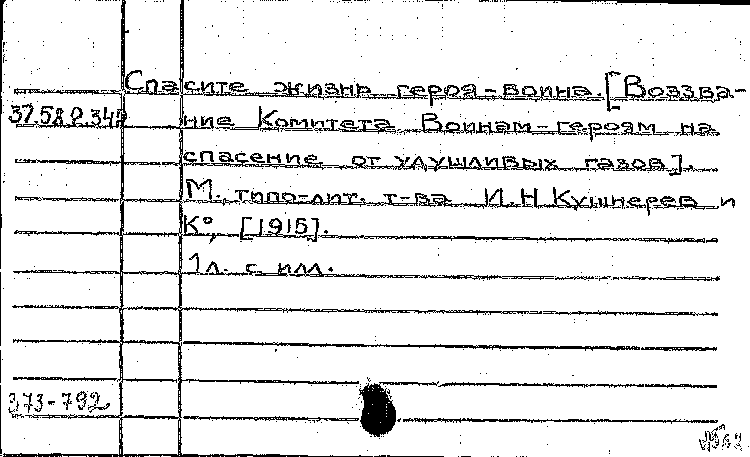 Спасите жизнь героя-воина. [Воззва-
37.58.2.342 ние Комитета Воинам-героям на
спасение от удушливых газов].
М., типо-лит. т-ва И.Н Кушнерев и
К°, [1915].
1л. с илл.
373-792